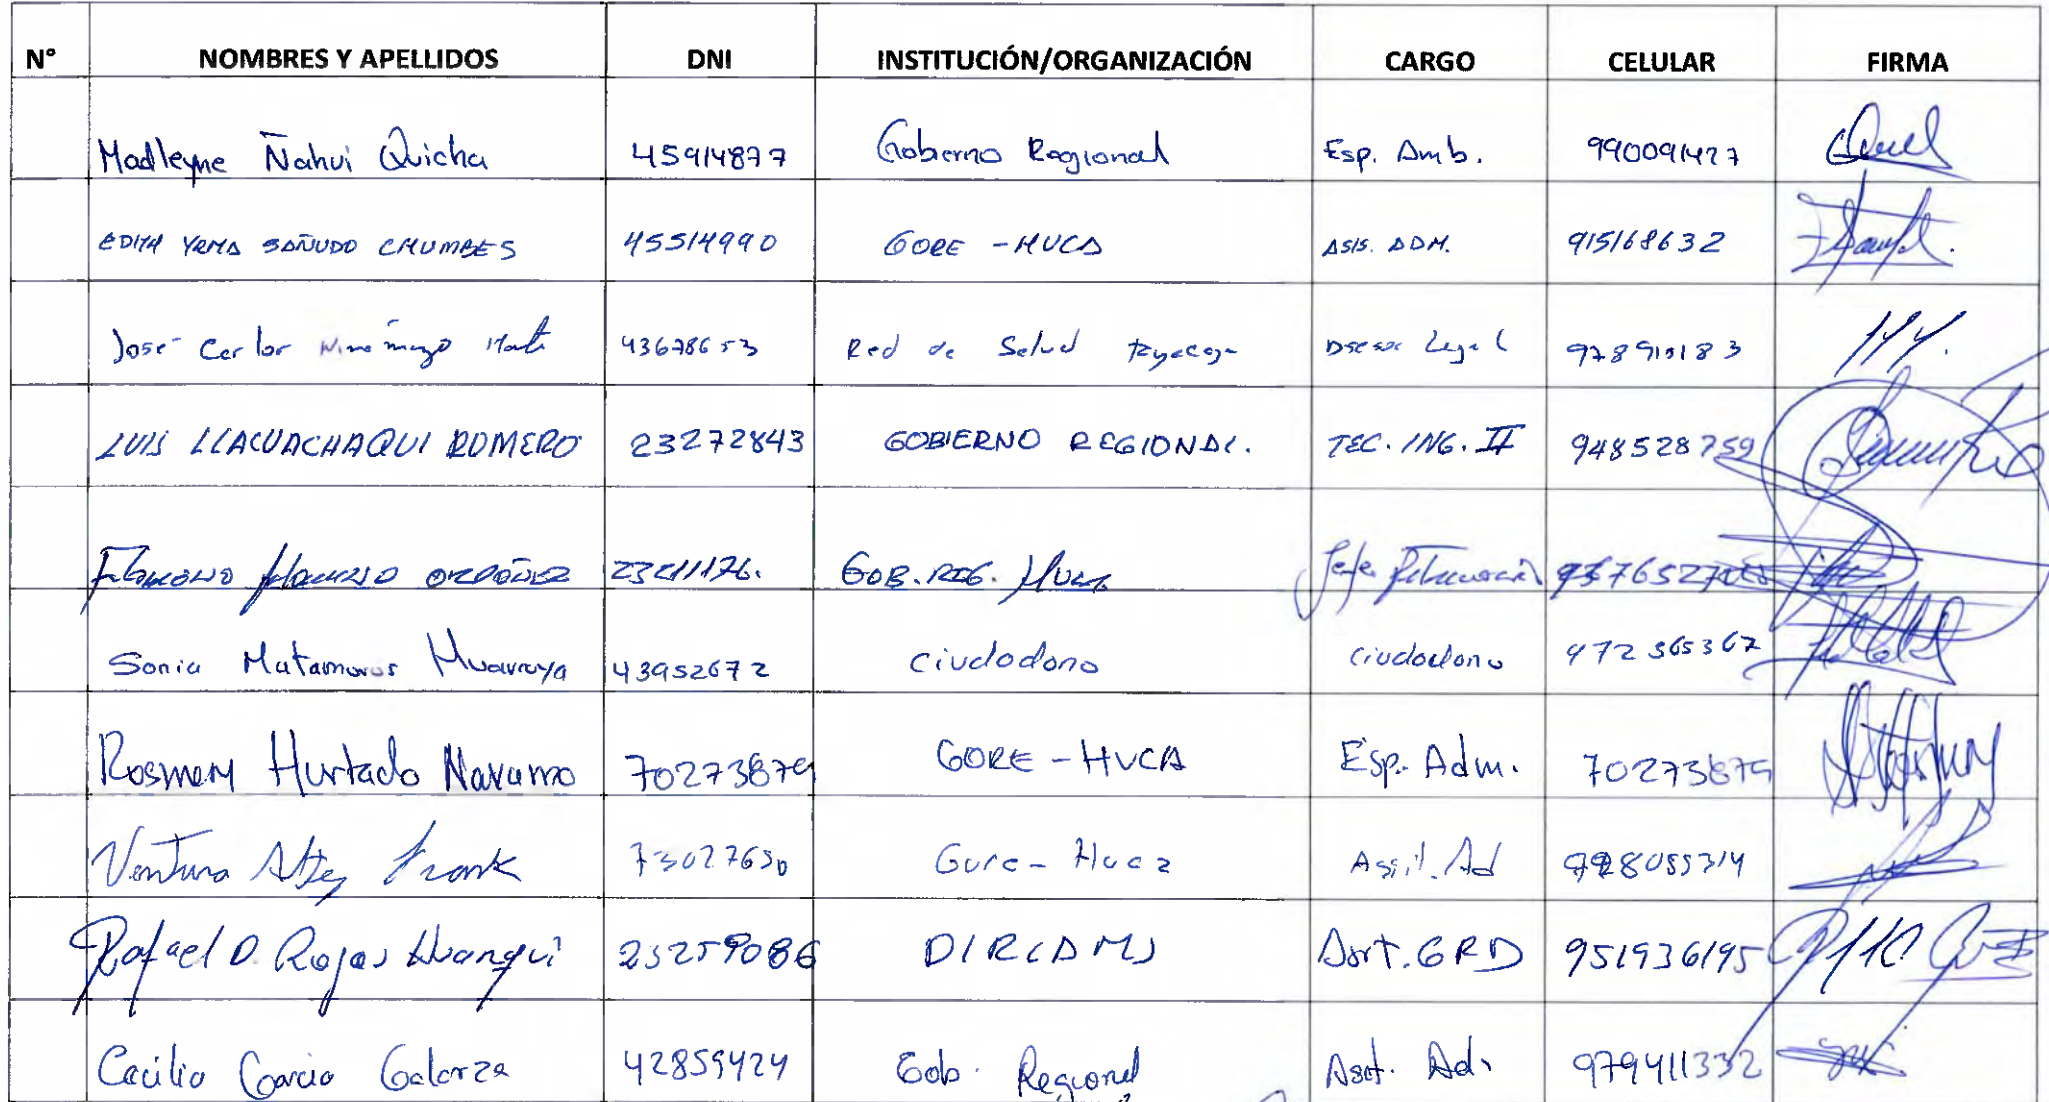 N° NOMBRES Y APELLIDOS DNI INSTITUCIÓN/ORGANIZACIÓN CARGO CELULAR FIRMA
Madleyne Ñahui Quicha 45914877 Gobierno Regional Esp. Amb. 990091427
EDITH YRMA SAÑUDO CHUMBES 45514990 GORE - HVCA ASIS. ADM. 915168632
José Carlos 43678653 Red de Salud Tayacaja Asesor Legal
LUIS LLACUACHAQUI ROMERO 23272843 GOBIERNO REGIONAL. TEC. ING. II 948528759
ORDOÑEZ GOB. REG. HVCA Jefe
Sonia Matamoros Huarcaya 43952672 ciudadano ciudadano 972365367
Rosmery Hurtado Navarro 70273879 GORE - HVCA Esp. Adm. 70273879
Ventura Frank 73027650 Gore - Huca Asist. Ad
Rafael D. Rojas Huanqui 23259086 Asit. GRD 951936195
Cecilio Garcia Galarza 42859424 Gob. Regional Asit. Ad. 979411332